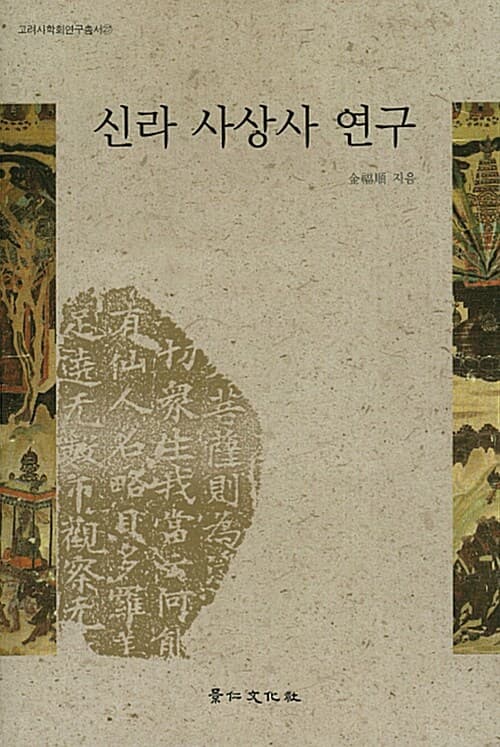 고려사학회연구총서㉑
신라 사상사 연구
金福順 지음
菩薩則為
切衆生我當云何能
有仙人名略具多羅
足遶无數帀觀察无
景仁文化社